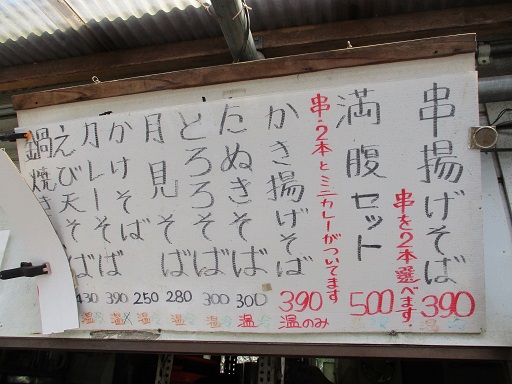 串揚げそば
串を2本選べます。
390
満腹セット
500
串・2本とミニカレーがついてます
かき揚げそば
390
温のみ
たぬきそば
300
温
とろろそば
300
温
月見そば
280
温
かけそば
250
温
カレーそば
390
温×
えび天そば
430
温
鍋焼き